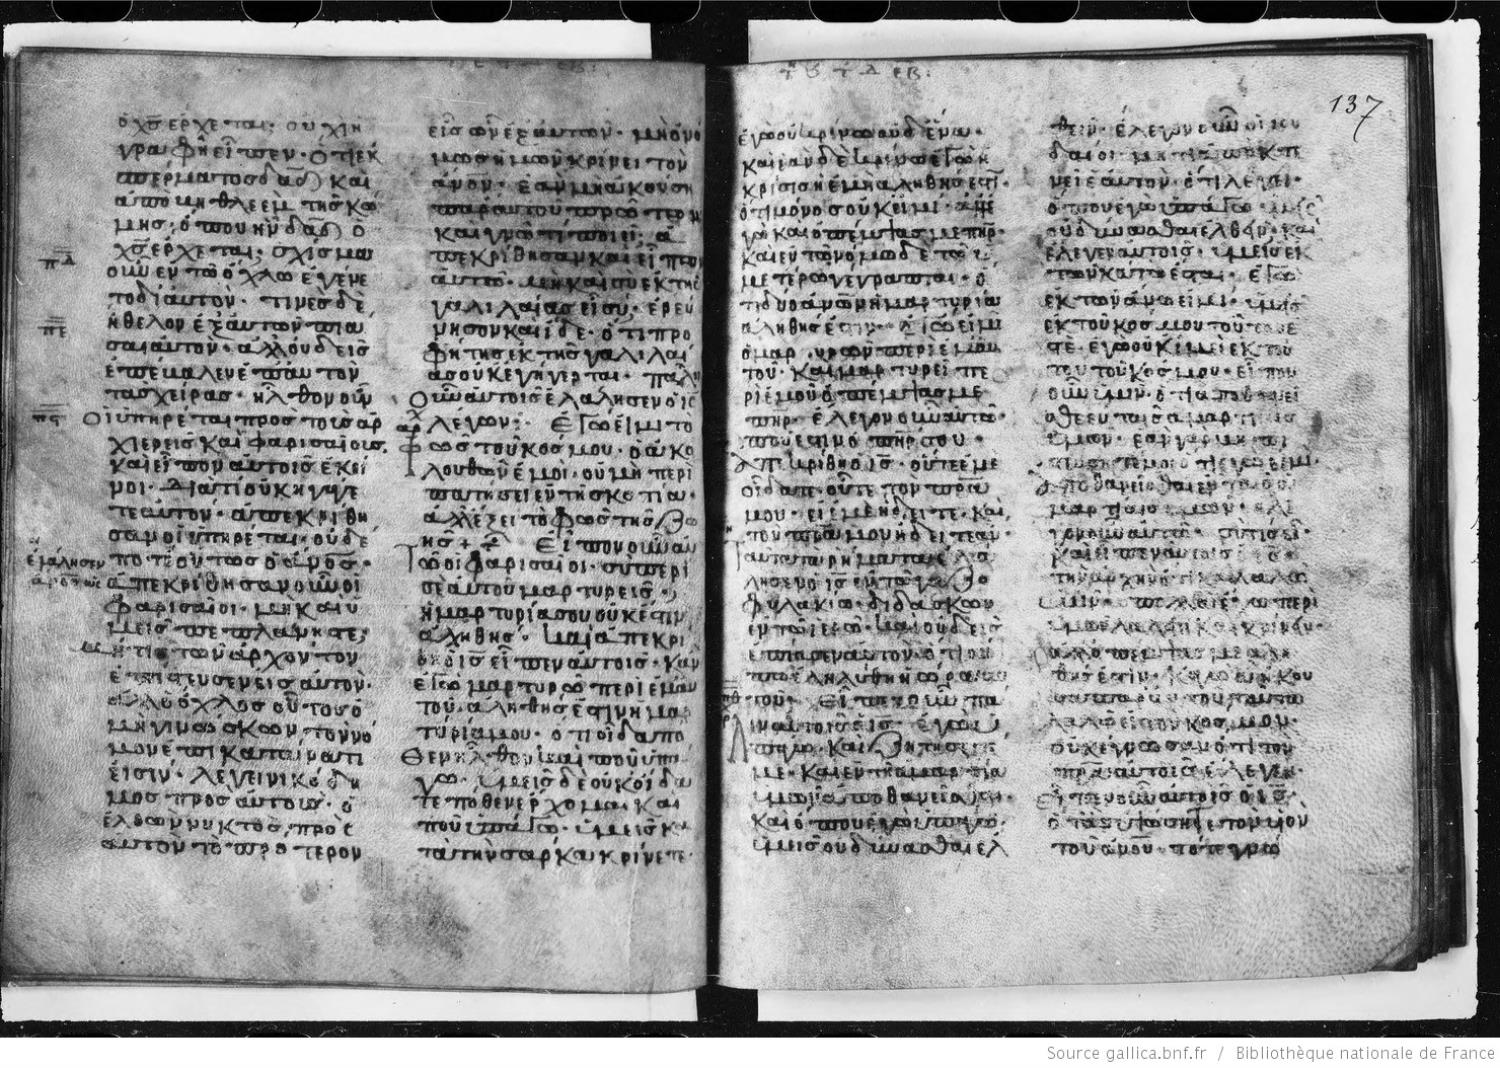 ὁ χς ἔρχεται; οὐχι ἡ
γραφὴ εἶπεν· ὅτι ἐκ
σπερματοσ δαδ καὶ
ἀπο βηθλεὲμ τῆσ κώ
μησ, ὅπου ἦν δαδ ὁ
χς ἔρχεται; σχίσμα
οὖν ἐν τῶ ὄχλω ἐγένε
το δι αὐτόν· τινεσ δὲ
ἤθελον ἐξ αὐτῶν πια
σαι αὐτον· ἀλλ οὐδεὶσ
ἐπέβαλεν ἐπ αυτον
τασ χεῖρασ· ἦλθον οὖν
οἱ ὑπηρέται προσ τοὺσ ἀρ
χιερεισ καὶ φαρισαίουσ,
και εἶπον αὐτοισ ἐκεῖ
νοι· διατί οὐκ ἠγάγε
τε αὐτον· ἀπεκρίθη
σαν οἱ ὑπηρέται· οὐδέ
ποτε οὕτωσ
ἐλάλησεν
ἀπεκρίθησαν οὖν οἱ
φαρισαῖοι· μὴ και ὑ
μεῖσ πεπλάνησθε;
μή τισ τῶν ἀρχόντων
ἐπίστευσεν εἰσ αὐτὸν·
ὁ ὄχλοσ οὗτοσ ὁ
μὴ γινώσκων τὸν νό
μον ἐπικατάρατοι
εἰσίν· λέγει νικόδη
μοσ προσ αὐτουσ· ὁ
ἐλθων νυκτὸσ, πρὸσ
αὐτον τὸ πρότερον
εἷσ ὢν ἐξ αὐτῶν· μὴ ὁ νό
μοσ ἡμῶν κρίνει τὸν
ἀνον· ἐὰν μὴ ἀκούση
παρ αὐτοῦ πρῶτερον
καὶ γνῶ τι ποιεῖ; ἀ
πεκρίθησαν καὶ εἶπον
αὐτω· μὴ καὶ σὺ ἐκ τῆσ
γαλιλαίασ εἶ σύ· ἐρεύ
νησον καὶ ἴδε· ὅτι προ
φήτησ ἐκ τῆσ γαλιλαί
ασ οὐκ ἐγήγερται· παλιν
οὖν αὐτοῖσ ἐλάλησεν ὁ ις
λέγων· ἐγώ εἰμι τὸ
φῶσ τοῦ κόσμου. ὁ ἀκο
λουθῶν ἐμοι· οὐ μὴ περι
πατήσει ἐν τῆ σκοτία·
ἀλλ ἕξει τὸ φῶσ τῆσ ζω
ῆσ + εἶπον οὖν αὐ
τῶ οἱ φαρισαῖοι· σὺ περὶ
σεαυτοῦ μαρτυρεῖσ·
ἡ μαρτυρία σου οὐκ ἔστιν
ἀληθήσ· καὶ ἀπεκρί
θη ὁ ις εἶπεν αὐτοῖσ· κἂν
ἐγὼ μαρτυρῶ περὶ ἐμαυ
τοῦ. ἀληθήσ ἐστιν ἡ μαρ
τυρία μου· ὅτι οἶδα πό
θεν ἦλθον καὶ ποῦ ὑπά
γω· ὑμεῖσ δὲ οὐκ οἴδα
τε πόθεν ἔρχομαι και
ποῦ ὑπάγω· ὑμεῖσ κα
τα τὴν σάρκα κρίνετε·
137
ἐγὼ οὐ κρίνω οὐδένα·
καὶ ἐὰν δὲ κρίνω ἐγὼ ἡ
κρίσισ ἡ ἐμὴ ἀληθήσ ἐστι·
ὅτι μόνοσ οὐκ εἰμὶ· ἀλλ ἐ
γὼ καὶ ὁ πέμψασ με πηρ·
καὶ ἐν τῶ νόμω δὲ τῶ ὑ
μετέρω γέγραπται· ὅ
τι δύο ἀνων ἡ μαρτυρία
ἀληθήσ ἐστιν· ἐγώ εἰμι
ὁ μαρτυρῶν περὶ ἐμαυ
τοῦ· καὶ μαρτυρεῖ πε
ρὶ ἐμοῦ ὁ πέμψασ με
πηρ· ἔλεγον οὖν αὐτῶ·
ποῦ ἐστιν ὁ πηρ σου·
ἀπεκρίθη ὁ ις· οὔτε ἐμὲ
οἴδατε· οὔτε τὸν πρα
μου· εἰ ἐμὲ ἤδειτε· καὶ
τὸν πρα μου ἤδειτε ἂν·
ταῦτα τὰ ῥήματα ἐλά
λησεν ὁ ις ἐν τῶ γαζο
φυλακίω· διδάσκων
ἐν τῶ ἱερῶ· καὶ οὐδεὶσ
ἐπίασεν αὐτον ὅτι οὔ
πω ἐληλύθει ἡ ὥρα αὐ
τοῦ· εἶπεν οὖν πά
λιν αὐτοῖσ ὁ ις· ἐγὼ ὑ
πάγω· καὶ ζητήσετέ
με· καὶ ἐν τῆ ἁμαρτία
ὑμῶν ἀποθανεῖσθε·
καὶ ὅπου ἐγὼ ὑπάγω·
ὑμεῖσ οὐ δύνασθαι ἐλ
θεῖν· ἔλεγον οὖν οἱ ιου
δαῖοι· μήτι ἀποκτε
νεῖ ἑαυτὸν· ὅτι λέγει·
ὅπου ἐγὼ ὑπάγω· ὑμεῖς
οὐ δύνασθαι ἐλθεῖν· καὶ
ἔλεγεν αὐτοῖσ· ὑμεῖσ ἐκ
τῶν κάτω ἐσται· ἐγὼ
ἐκ τῶν ἄνω εἰμί· ὑμεῖσ
ἐκ τοῦ κόσμου τούτου ἐσ
τέ· ἐγὼ οὐκ εἰμὶ ἐκ τοῦ
τούτου κόσμου· εἶπον
οὖν ὑμῖν· ὅτι ἀποθανεῖ
σθε ἐν ταῖσ ἁμαρτίαισ
ὑμῶν· ἐὰν γαρ μὴ πι
στεύσητέ μοι ὅτι ἐγώ εἰμι·
ἀποθανεῖσθαι ἐν ταῖσ
ἁμαρτίαισ ὑμῶν· ἔλε
γον οὖν αὐτῶ· σὺ τίσ εἶ·
καὶ εἶπεν αὐτοῖσ ὁ ις·
τὴν ἀρχὴν ὅτι καὶ λαλῶ
ὑμῖν· πολλα ἔχω περὶ
ὑμῶν λαλεῖν καὶ κρίνειν·
ἀλλ ὁ πέμψασ με ἀλη
θήσ ἐστιν· κἀγὼ ἃ ἤκου
σα παρ αὐτοῦ ταῦτα
λαλῶ εἰσ τὸν κόσμον·
οὐκ ἔγνωσαν ὅτι τὸν
πρα αὐτοῖσ ἔλεγεν·
εἶπεν οὖν αὐτοῖσ ὁ ις·
ὅταν ὑψώσητε τὸν υἱὸν
τοῦ ἀνου· τότε γνώ
Source gallica.bnf.fr / Bibliothèque nationale de France